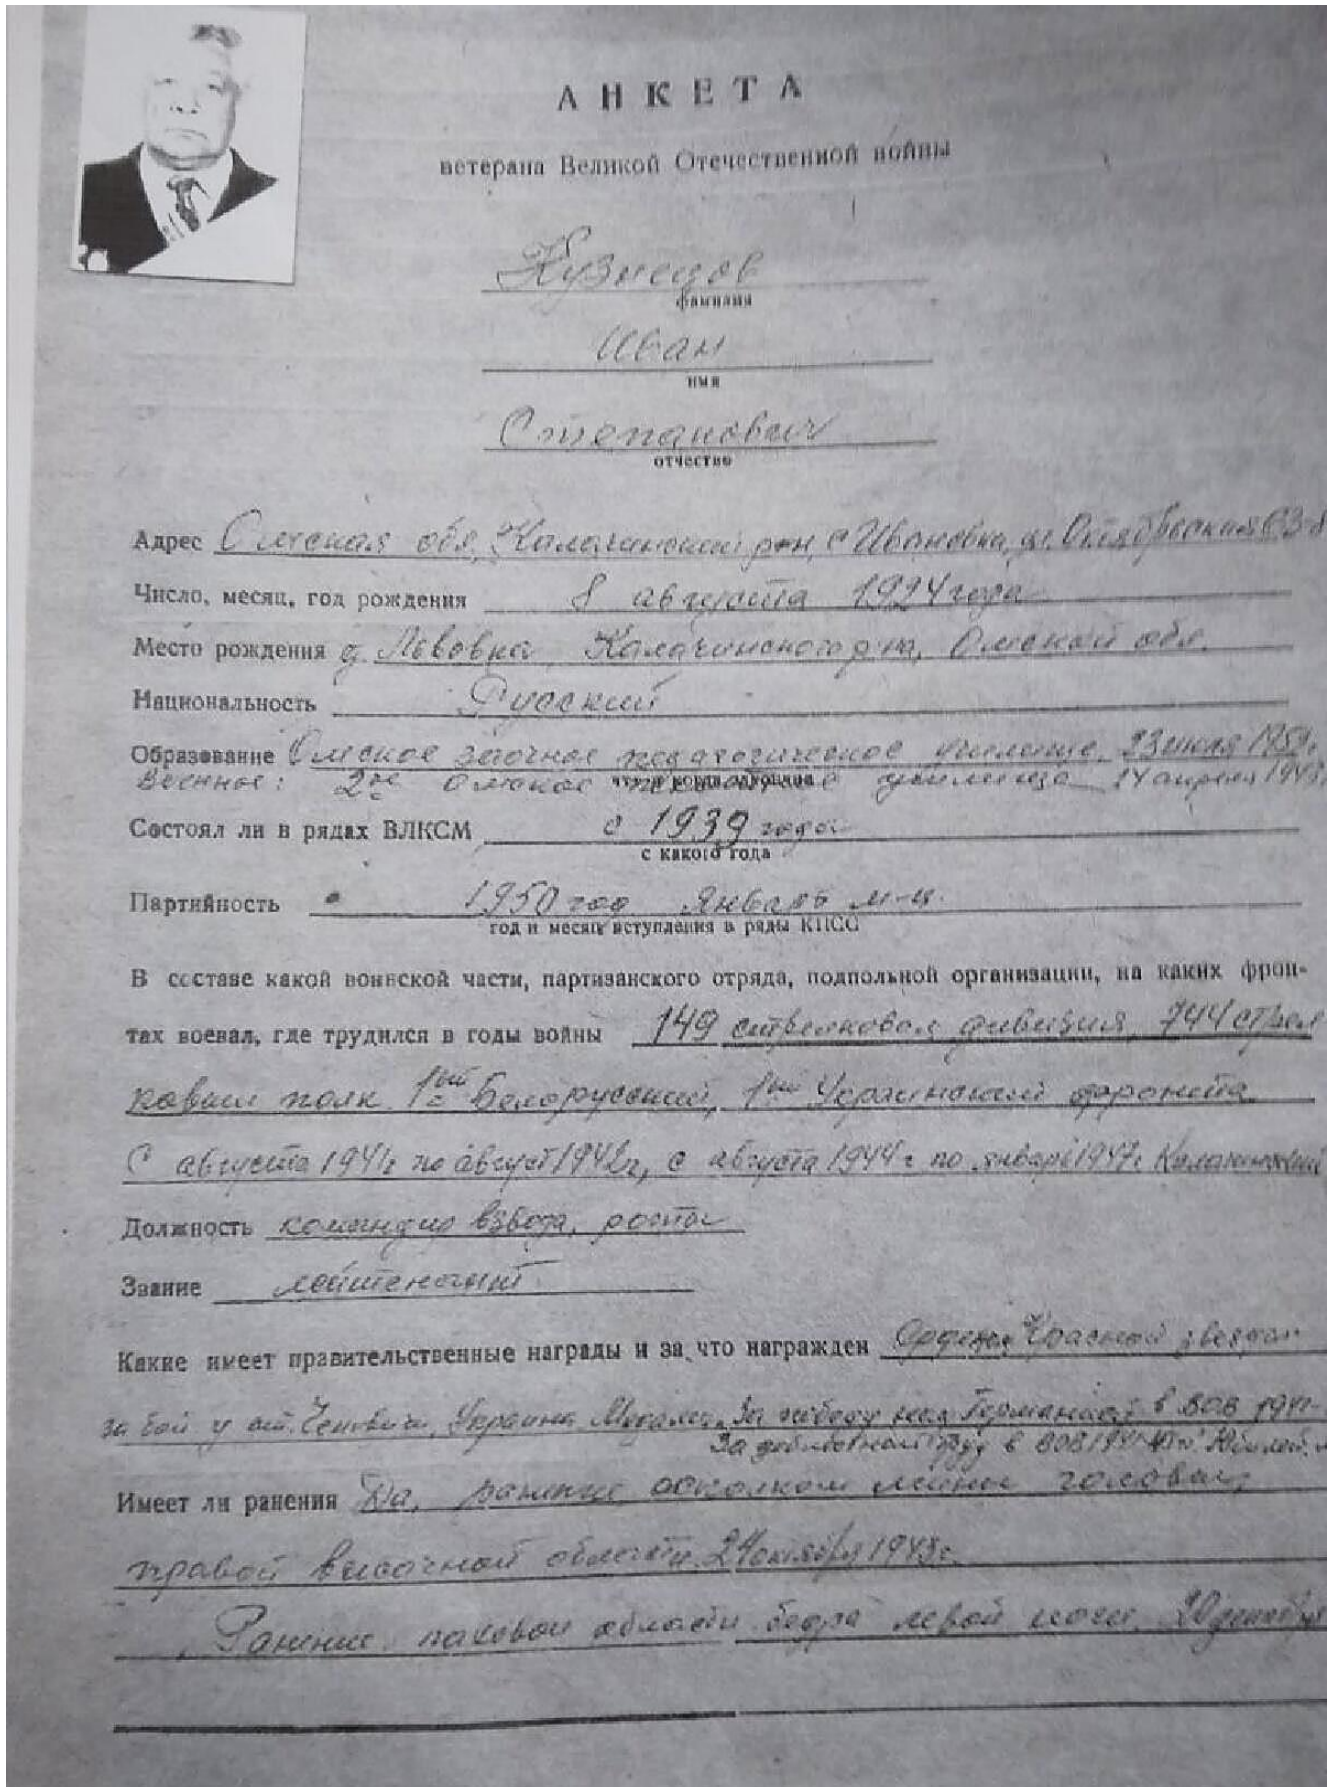 АНКЕТА
ветерана Великой Отечественной войны
Кузнецов
фамилия
Иван
имя
Степанович
отчество
Адрес Омская обл. Калачинский р-н, с Ивановка, ул. Октябрьская
Число, месяц, год рождения 8 августа 1924 года
Место рождения д. Львовка, Калачинского р-на, Омской обл.
Национальность Русский
Образование Омское заочное педагогическое училище, 23 июля
Военное: 2ое Омское училище 24 апреля
Состоял ли в рядах ВЛКСМ с 1939 года
с какого года
Партийность 1950 год Январь м-ц.
год и месяц вступления в ряды КПСС
В составе какой воинской части, партизанского отряда, подпольной организации, на каких фрон-
тах воевал, где трудился в годы войны 149 стрелковая дивизия, 744 стрел
ковый полк 1ый Белорусский, 1ый Украинский фронта
С августа 1941г по август 1942г, с августа 1944г по январь 1947г
Должность командир взвода, роты
Звание лейтенант
Какие имеет правительственные награды и за что награжден Орденом Красной звезды
за бой у Украина. За победу над Германией в ВОВ 1941-
За доблестный труд в ВОВ
Имеет ли ранения Да, ранение осколком мины головы,
правой височной области 24 октября 1943г.
Ранение паховой области бедра левой ноги 20 декабря